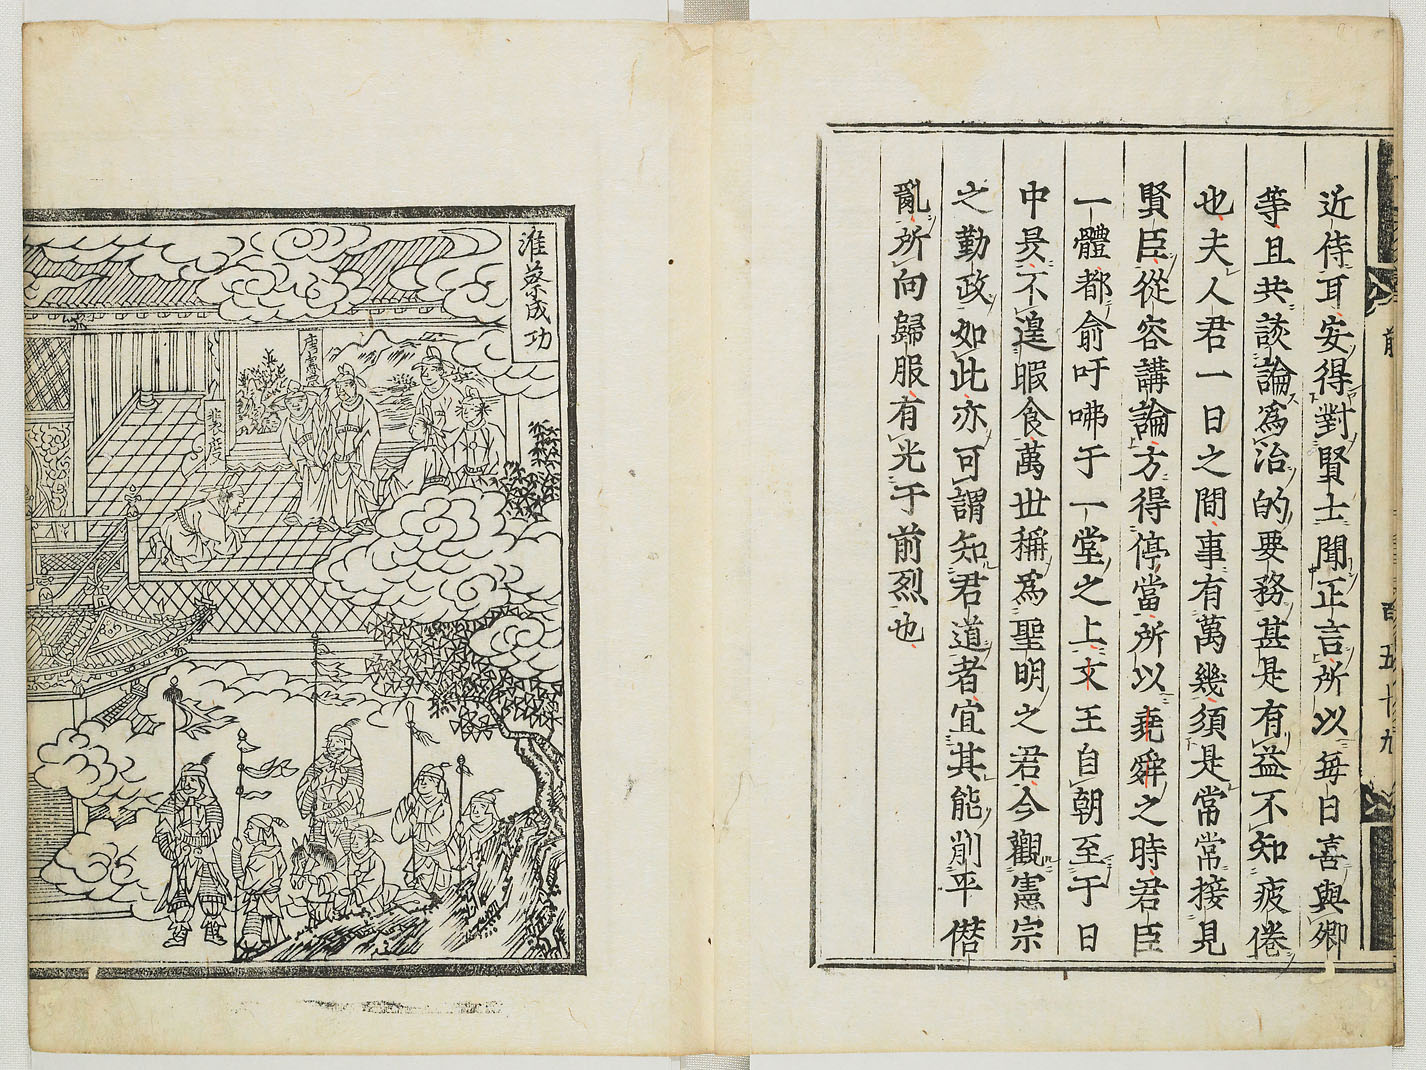 近侍耳安得對賢士聞正言所以每日喜與卿
等且共談論爲治的要務甚是有益不知疲倦
也夫人君一日之間事有萬幾須是常常接見
賢臣從容講論方得停當所以堯舜之時君臣
一體都俞吁咈于一堂之上文王自朝至于日
中昃不遑暇食萬世稱爲聖明之君今觀憲宗
之勤政如此亦可謂知君道者宜其能削平僭
亂所向歸服有光于前烈也
前
百五十九
淮蔡成功
唐憲宗
裴度